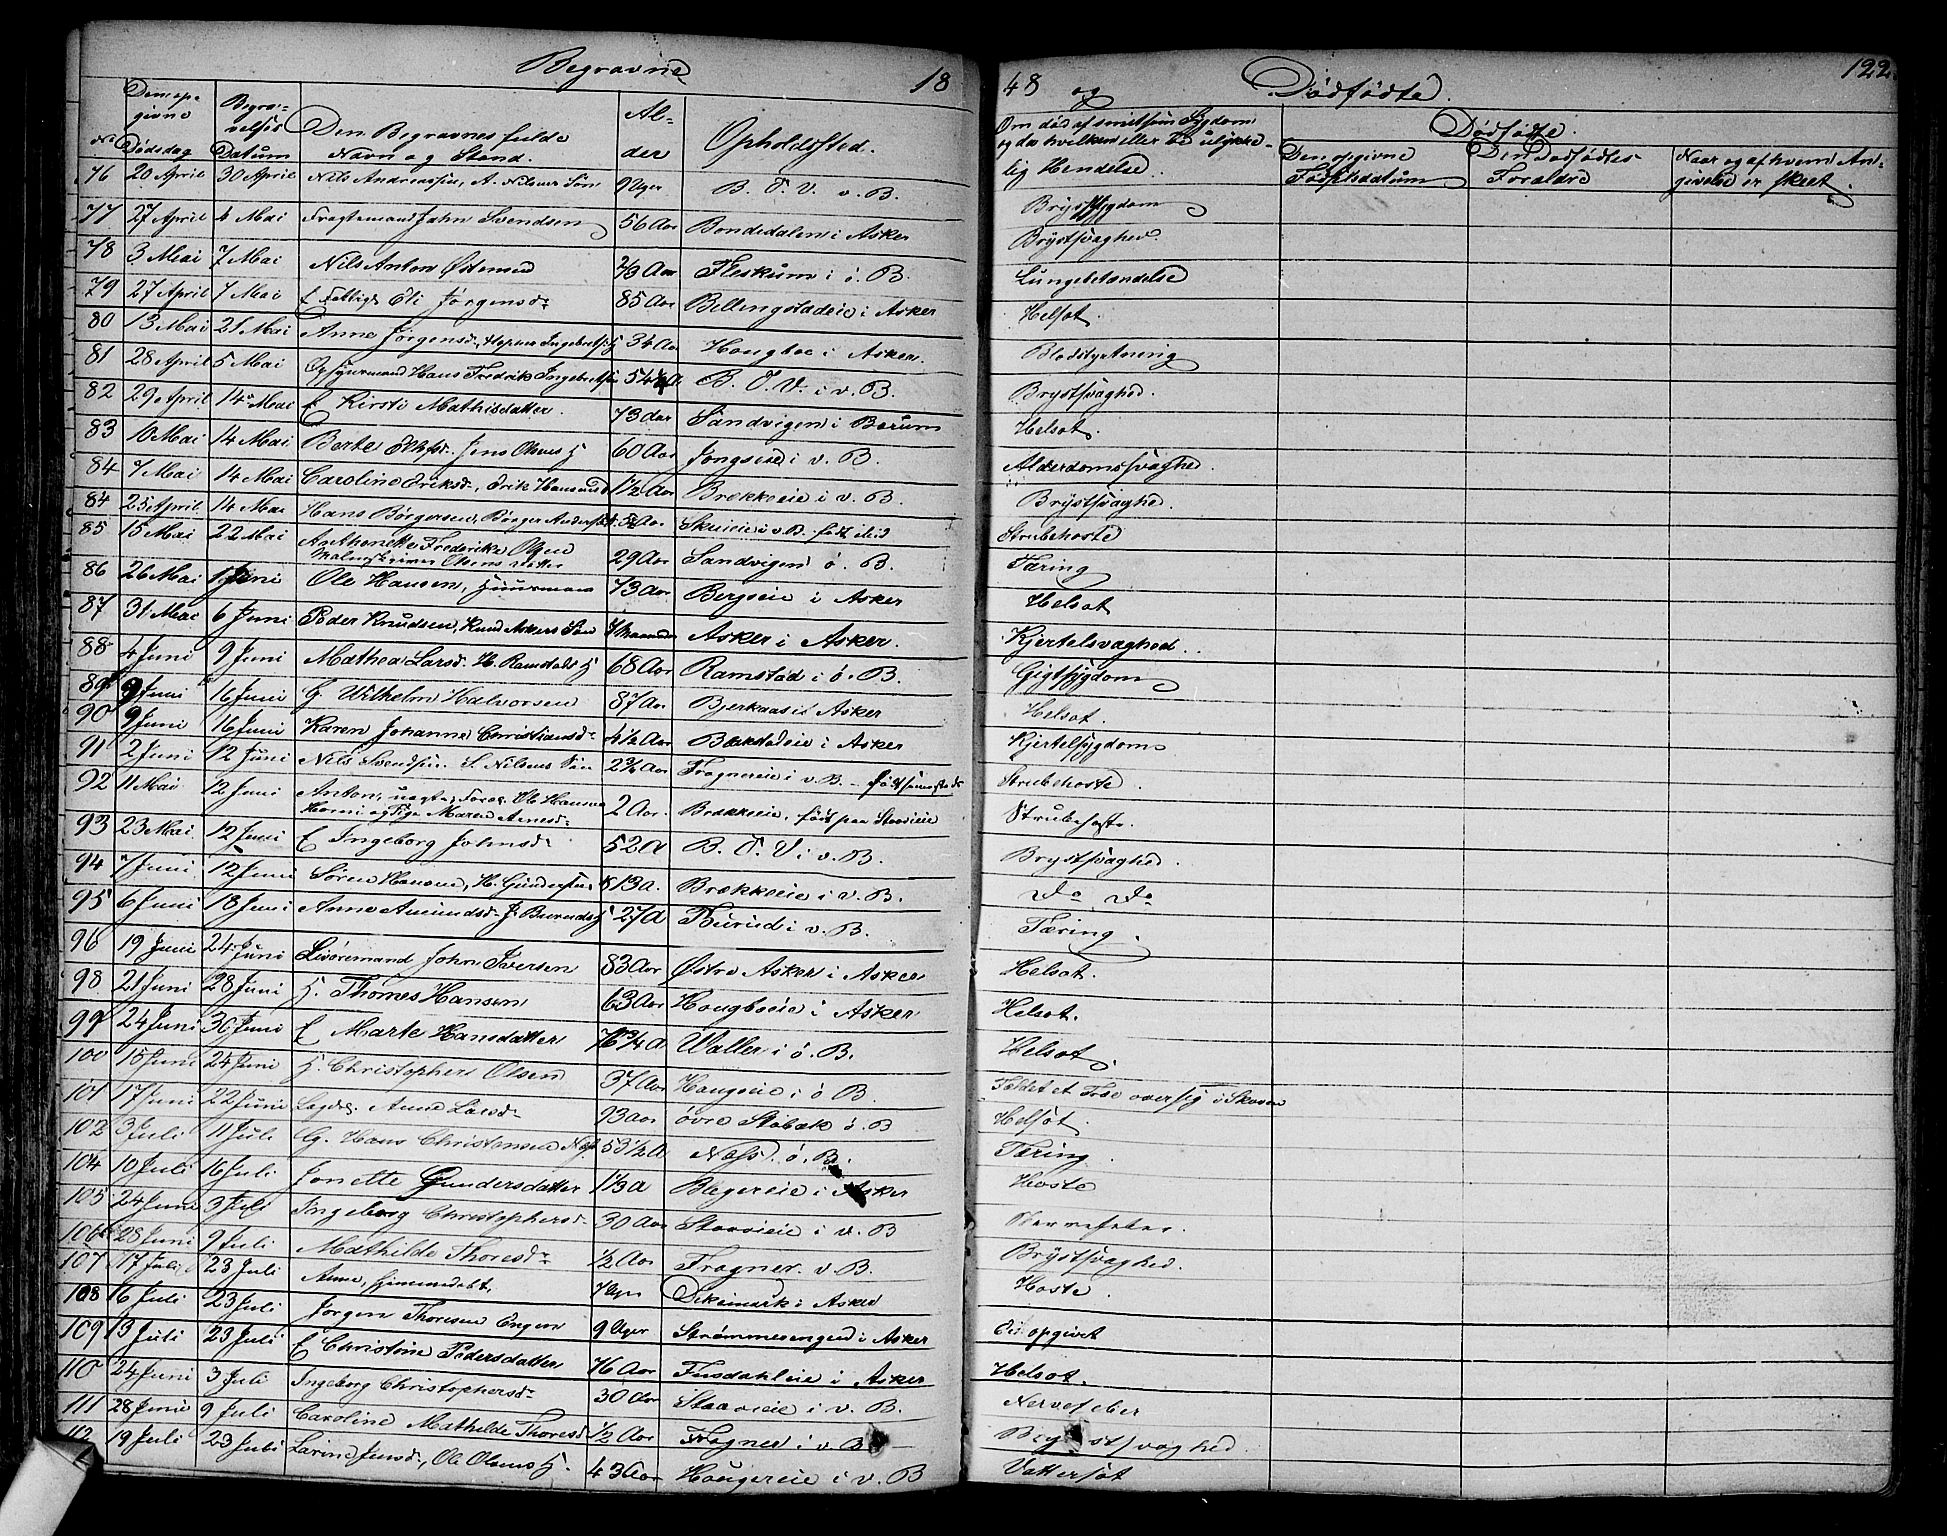 Begravne 1848 og Dødfødte. 122
No Den opgivne Dødsdag Begravelses Datum Den Begravnes fulde Navn og Stand. Alder Opholdssted. Om død af smitsom Sygdom og da hvilken eller ved ulykkelig Hendelse. Dødfødte. Den opgivne Fødselsdatum Den Dødfødtes Forældre Naar og af hvem Angivelse er skeet.
76 20 April 30 April Nils Andreassen, A. Nilsens Søn 9 Uger B. T. V. v. B. Brystsygdom
77 27 April 4 Mai John Svendsen 56 Aar Bondedalen i Asker Brystsvaghed.
78 3 Mai 7 Mai Nils Anton Østensen Fleskum i ö. B. Lungebetændelse
79 27 April 7 Mai E Fattigl. Eli Jørgensd. 85 Aar Bellingstadeie i Asker Helsot.
80 13 Mai 21 Mai Anne Jørgensd. 34 Aar Hougboe i Asker. Blodstyrtning
81 28 April 5 Mai Opsynsmand Hans Fredrik Ingebretsen 54 B. T. V. i v. B. Brystsvaghed.
82 29 April 14 Mai E Kirsti Mathisdatter. 73 Aar Sandvigen i Bærum Helsot.
83 10 Mai 14 Mai Berte Jens Olsens H 60 Aar Jongseie i v. B. Alderdomssvaghed.
84 7 Mai 14 Mai Caroline Eriksd., Erik Hansens d 1½ Aar Brækkeeie i v. B. Brystsvaghed.
84 25 April 14 Mai Hans Børgersen, Børger Anders Skuieie i v. B. født ibid Strubehoste
85 15 Mai 22 Mai Anthonette Frederikke Olsen 29 Aar Sandvigen ö. B. Tæring
Olsens datter
86 26 Mai 1 Juni Ole Hansen, Huusmand 73 Aar Bergseie i Asker Helsot
87 31 Mai 6 Juni Peder Knudsen, Knud Askers Søn Maaneder Asker i Asker. Kjertelsvaghed.
88 4 Juni 9 Juni Mathea Larsd. H. Ramstads H 68 Aar Ramstad i ö. B. Gigtsygdom
89 9 Juni 16 Juni G. Wilhelm Halvorsen 87 Aar Bjerkaas i Asker Helsot.
90 9 Juni 16 Juni Karen Johanne Christiansd. 4½ Aar Bækstadeie i Asker Kjertelsygdom
91 2 Juni 12 Juni Nils Svendsen S. Nilsens Søn Aar Frognereie i v. B. Strubehoste.
92 11 Mai 12 Juni Anton, uægte, Foræ. Ole Hansen 2 Aar. Brækkeeie, født paa Staveie Strubehoste.
Horni og Pige Maren Arnesd.
93 23 Mai 12 Juni E Ingeborg Johnsd. 52 A B. T. V i v. B. Brystsvaghed.
94 7 Juni 12 Juni Søren Hansen, H. Gundersens 13 a. Brækkeeie i v. B. Do Do
95 6 Juni 18 Juni Anne Amundsd. J. Buruds H 27 A Burud i v. B. Tæring.
96 19 Juni 24 Juni Livøremand John Iversen 83 Aar Østre Asker i Asker Helsot.
98 21 Juni 28 Juni H. Thomes Hansen 63 Aar Hougboeie i Asker Helsot.
99 24 Juni 30 Juni E Marte Hansdatter 76 ¾ A Waller i ö. B. Helsot.
100 15 Juni 24 Juni H. Christopher Olsen 37 Aar Haugeie i ö B. Fældet et Træ over sig i Skoven
101 17 Juni 22 Juni Lægdsl. Anne Larsd. 93 aar øvre Stabæk ö. B Helsot.
102 3 Juli 11 Juli G. Hans Christensen Næs 53 ½ A Næs ö. B. Tæring
104 10 Juli 16 Juli Jonette Gundersdatter 1⅓ a Bleger eie i Asker Hoste
105 24 Juni 3 Juli Ingeborg Christophersd. 30 Aar Staveie i v. B Nervefeber.
106 28 Juni 9 Juli Mathilde Thoresd. ½ Aar Frogner v. B. Brystsvaghed.
107 17 Juli 23 Juli Anne, hjemmedøbt, 7 Uger Dikemark i Asker Hoste.
108 16 Juli 23 Juli Jørgen Thoresen Engen 9 Uger Strømmesengen i Asker Ei opgivet
109 13 Juli 23 Juli E Christine Pedersdatter 76 Aar Fusdahleie i Asker Helsot.
110 24 Juni 3 Juli Ingeborg Christophersd. 30 Aar Staveie i v. B. Nervefeber
111 28 Juni 9 Juli Caroline Mathilde Thoresd ½ Aar Frogner i v B Brystsvaghed
112 19 Juli 23 Juli Larine Jensd., Ole Olsens H. 43 Aar Hougereie i v. B Vattersot